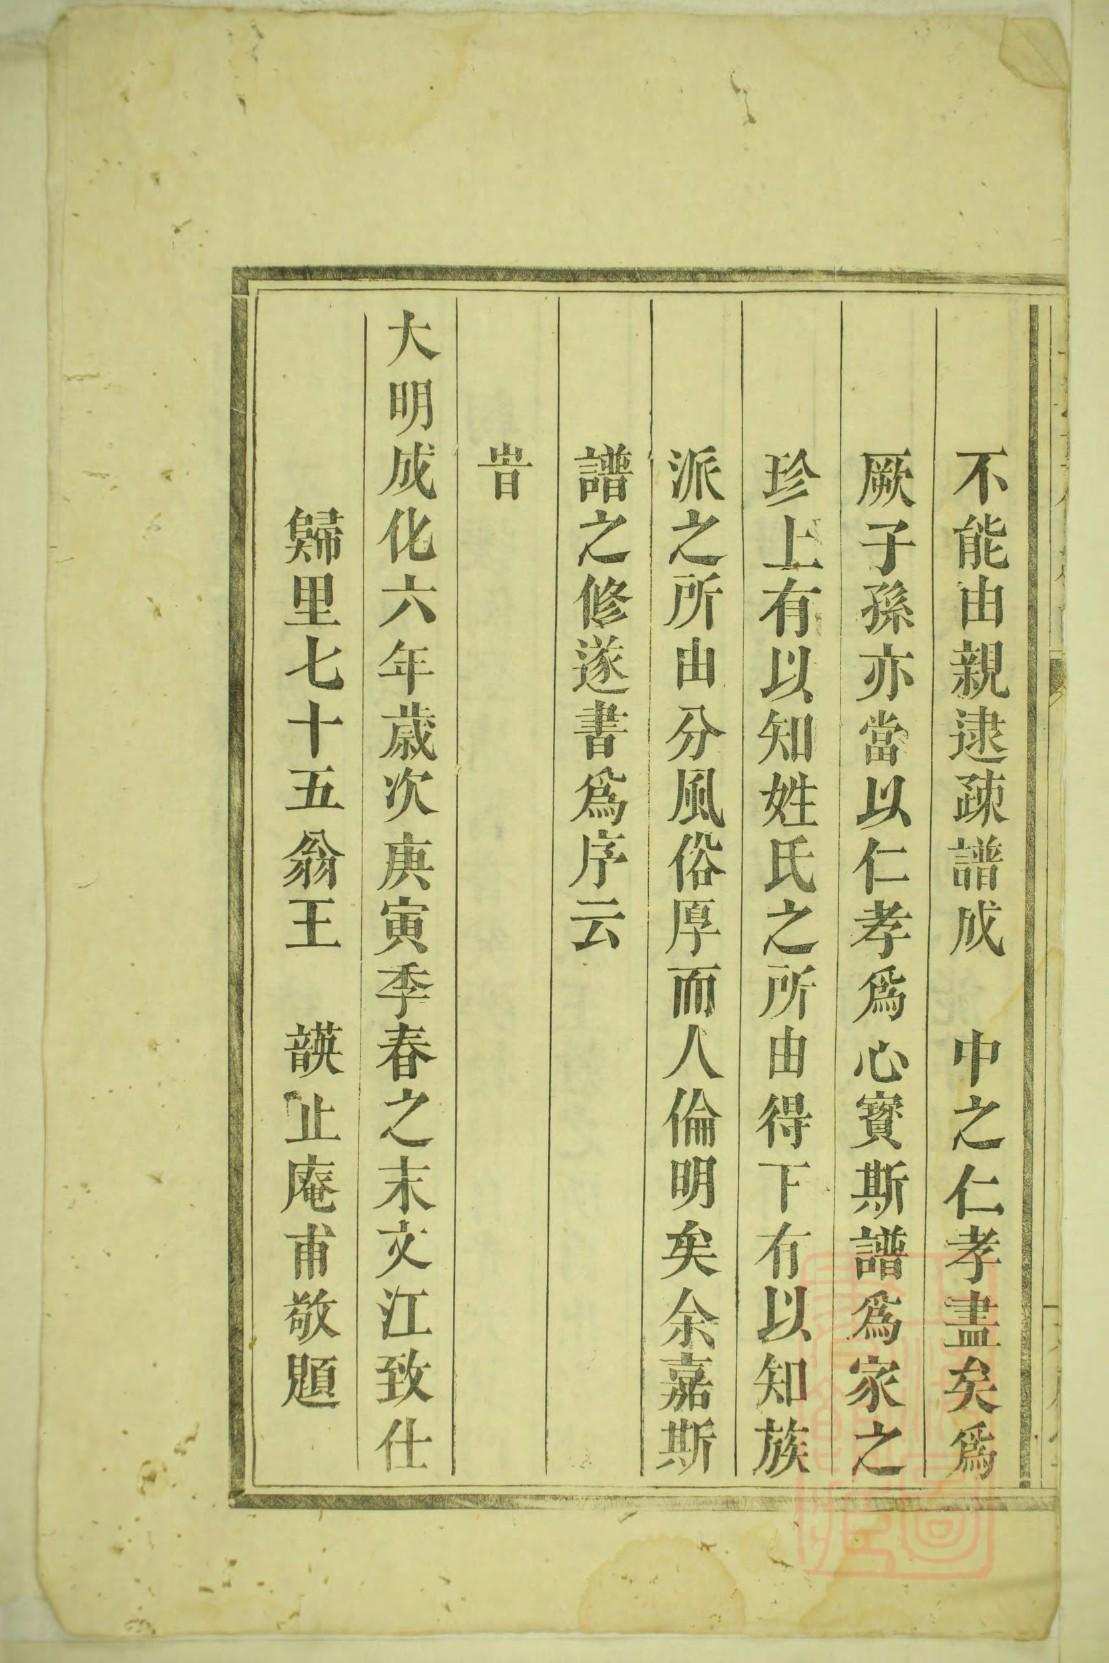 不能由親逮疎譜成　中之仁孝盡矣爲
厥子孫亦當以仁孝爲心寳斯譜爲家之
珍上有以知姓氏之所由得下有以知族
派之所由分風俗厚而人倫明矣余嘉斯
譜之修遂書爲序云
旹
大明成化六年歲次庚寅季春之末文江致仕
歸里七十五翁王　韺止庵甫敬題